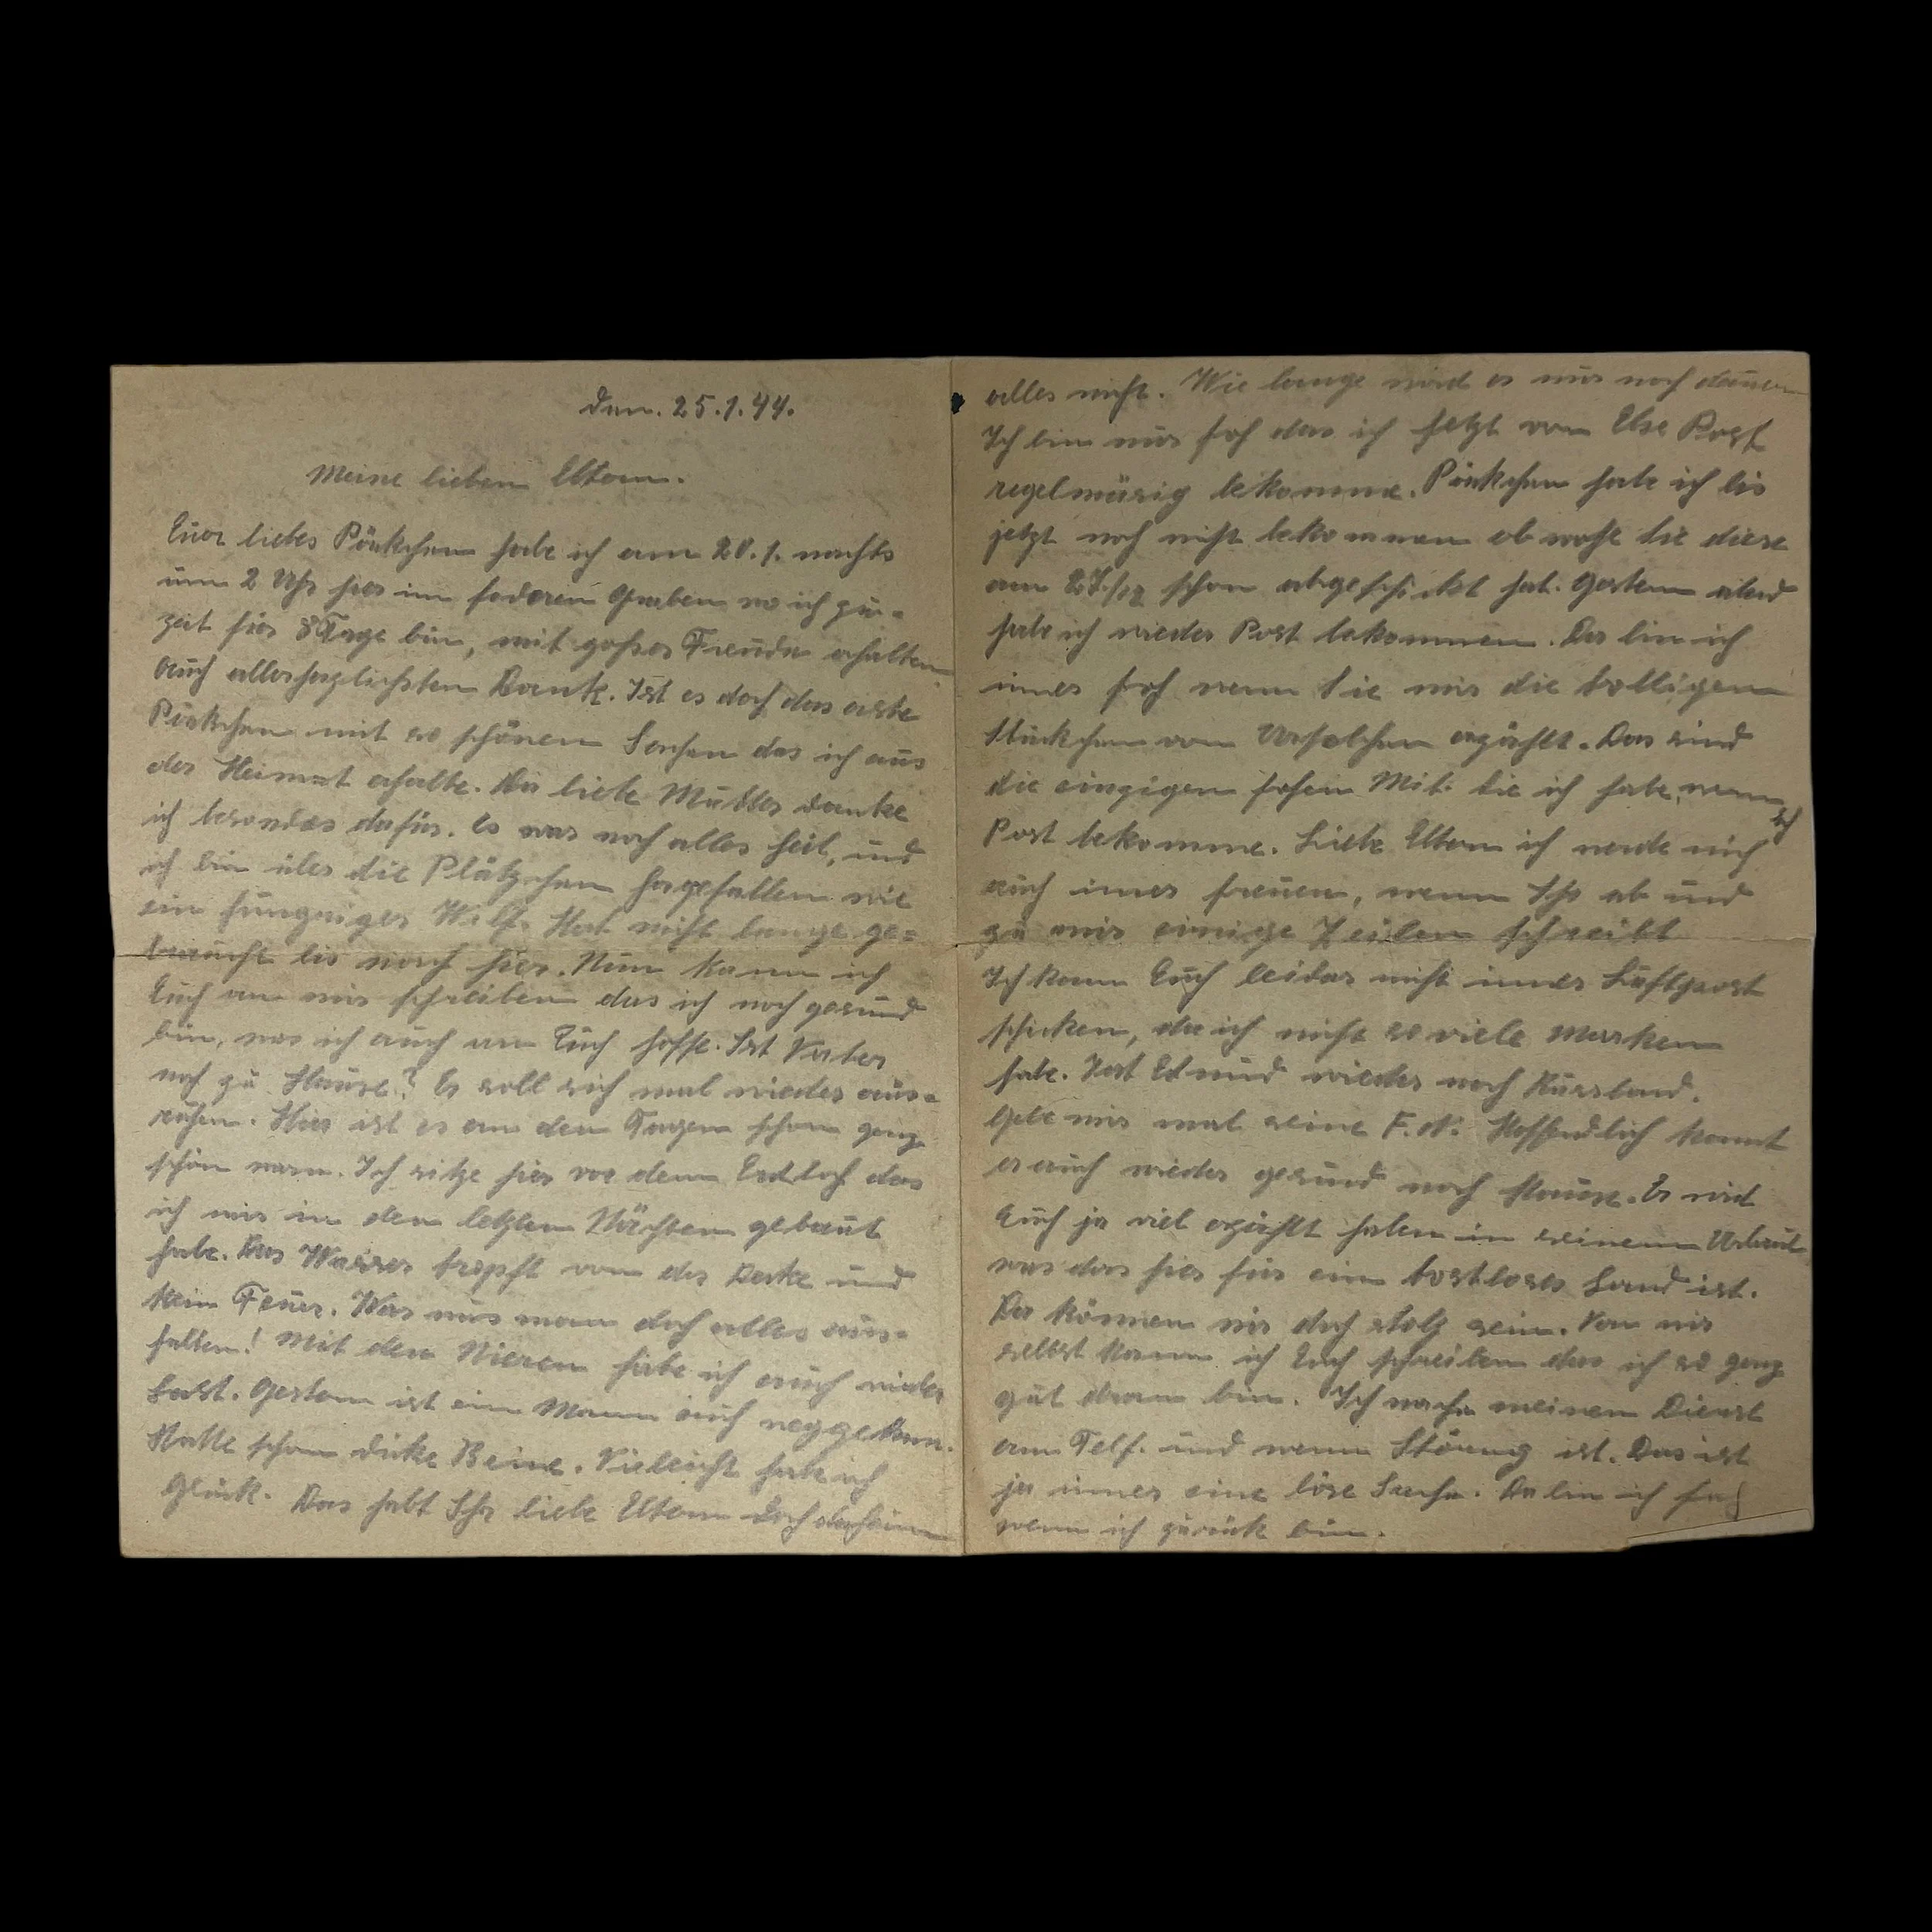 den. 25.1.44.
Meine lieben Eltern.
Euer liebes Päckchen habe ich am 20.1. nachts
um 2 Uhr hier im foderen Graben wo ich zur=
zeit für 8 Tage bin, mit großer Freude erhalten
auch allerherzlichsten Dank. Ist es doch das erste
Päckchen mit so schönen Sachen das ich aus
der Heimat erhalte. Dir liebe Mutter danke
ich besonders dafür. Es war noch alles heil, und
ich bin über die Plätzchen hergefallen wie
ein hungriger Wolf. Hat nicht lange ge=
braucht bis nach hier. Nun kann ich
Euch von mir schreiben das ich noch gesund
bin, was ich auch von Euch hoffe. Ist Vater
noch zu Hause? Er soll sich mal wieder aus=
ruhen. Hier ist es an den Tagen schon ganz
schön warm. Ich sitze hier vor dem Erdloch das
ich mir in den letzten Nächten gebaut
habe. Das Wasser tropft von der Decke und
kein Feuer. Was mus man doch alles aus=
halten! Mit den Nieren habe ich auch wieder
Last. Gestern ist ein Mann auch weggekom.
Hatte schon dicke Beine. Vieleicht habe ich
Glück. Das habt Ihr liebe Eltern doch daheim
alles nicht. Wie lange wird es nur noch dauern
Ich bin nur froh das ich jetzt von Else Post
regelmäsig bekomme. Päckchen habe ich bis
jetzt noch nicht bekommen ob wohl sie diese
am schon abgeschickt hat. Gestern abend
habe ich wieder Post bekommen. Da bin ich
imer froh wenn Sie mir die trolligen
Stückchen von Urselchen erzählt. Das sind
die einzigen frohen die ich habe, wenn
ich
Post bekomme. Liebe Eltern ich werde mich
auch imer freuen, wenn Ihr ab und
zu mir einige Zeilen schreibt
Ich kann Euch leider nicht imer Luftpost
schicken, da ich nicht so viele Marken
habe. Ist Edmund wieder nach Russland.
Gebe mir mal seine F.N. Hoffendlich kommt
er auch wieder gesund nach Hause. Er wird
Euch ja viel erzählt haben in seinem Urlaub
was das hier für ein trostloses Land ist.
Da können wir doch stolz sein. Von mir
selbst kann ich Euch schreiben das ich so ganz
gut dran bin. Ich mache meinen Dienst
am Telf. und wenn Störung ist. Das ist
ja imer eine böse Sache. Da bin ich froh
wenn ich zurück bin.